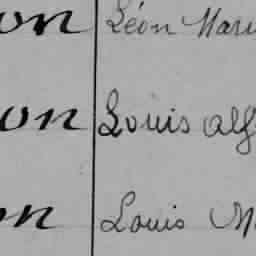 on Léon Mari
on Louis Alf
on Louis M